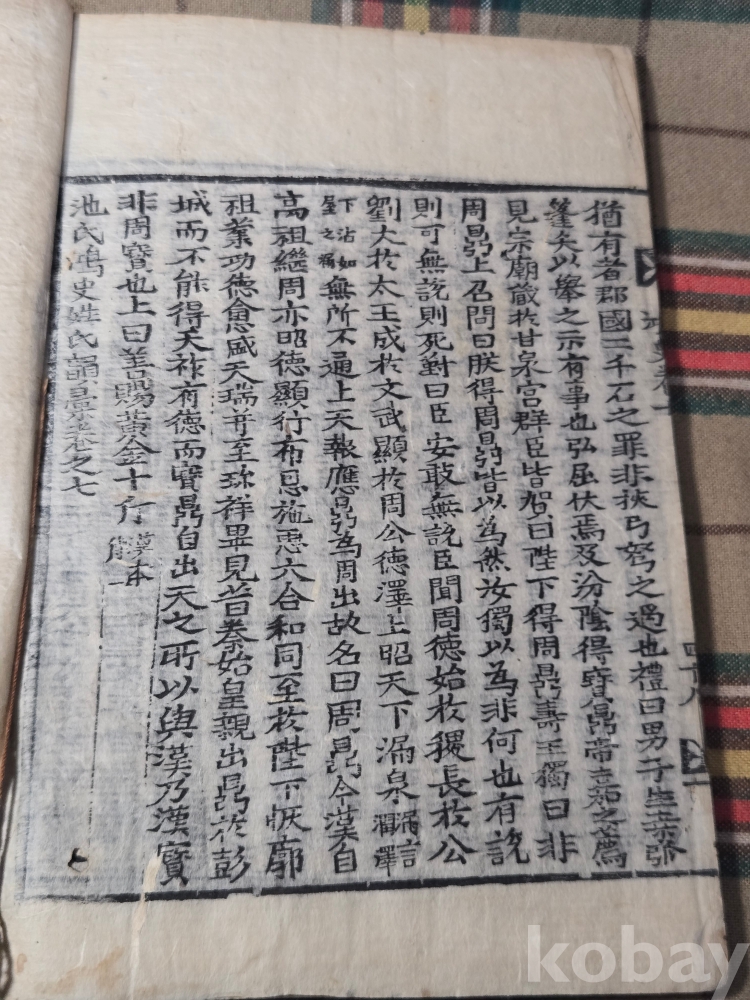 猶有者郡國二千石之罪非挾弓弩之過也禮曰男子生桑弧
蓬矢以擧之示有事也弘屈伏焉及汾陰得寶鼎帝嘉之薦
見宗廟藏於甘泉宮群臣皆賀曰陛下得周鼎壽王獨曰非
周鼎上召問曰朕得周鼎皆以為然汝獨以為非何也有說
則可無說則死對曰臣安敢無說臣聞周德始於稷長於公
劉大於太王成於文武顯於周公德澤上昭天下漏泉漏言潤澤
下沾如屋之漏無所不通上天報應鼎為周出故名曰周鼎今漢自
高祖繼周亦昭德顯行布恩施惠六合和同至於陛下恢廓
祖業功德愈盛天瑞並至珎祥畢見昔秦始皇親出鼎於彭
城而不能得天祚有德而寶鼎自出天之所以與漢乃漢寶
非周寶也上曰善賜黃金十斤漢本
池氏鴻史姓氏譜卷之七
四十八
kobay